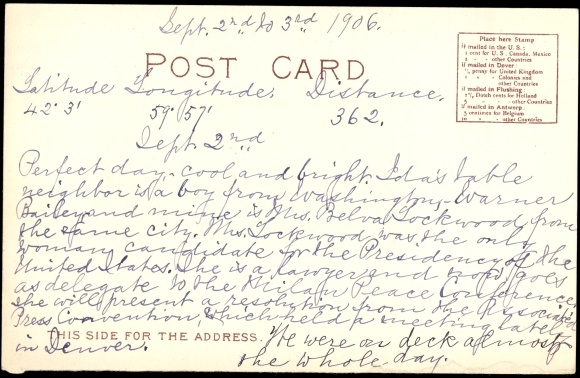 Sept. 2nd to 3rd 1906.
POST CARD
Place here Stamp
if mailed in the U.S.:
1 cent for U.S. Canada, Mexico
2 " " other Countries
if mailed in Dover:
½ penny for United Kingdom
1 " " Colonies and
other Countries
if mailed in Flushing:
2½ Dutch cents for Holland
5 " " other Countries
if mailed in Antwerp:
5 centimes for Belgium
10 " " other Countries
Latitude Longitude. Distance.
42° 3' 59° 57' 362.
Sept. 2nd
Perfect day-cool and bright. Ida's table
neighbor is a boy from Washington, Warner
Bailey and mine is Mrs. Belva Lockwood from
the same city. Mrs. Lockwood was the only
woman candidate for the Presidency of the
United States. She is a lawyer and now goes
as delegate to the Milan Peace Conference,
she will present a resolution from the Associated
Press Convention, which held a meeting lately
THIS SIDE FOR THE ADDRESS.
in Denver. We were on deck almost
the whole day.